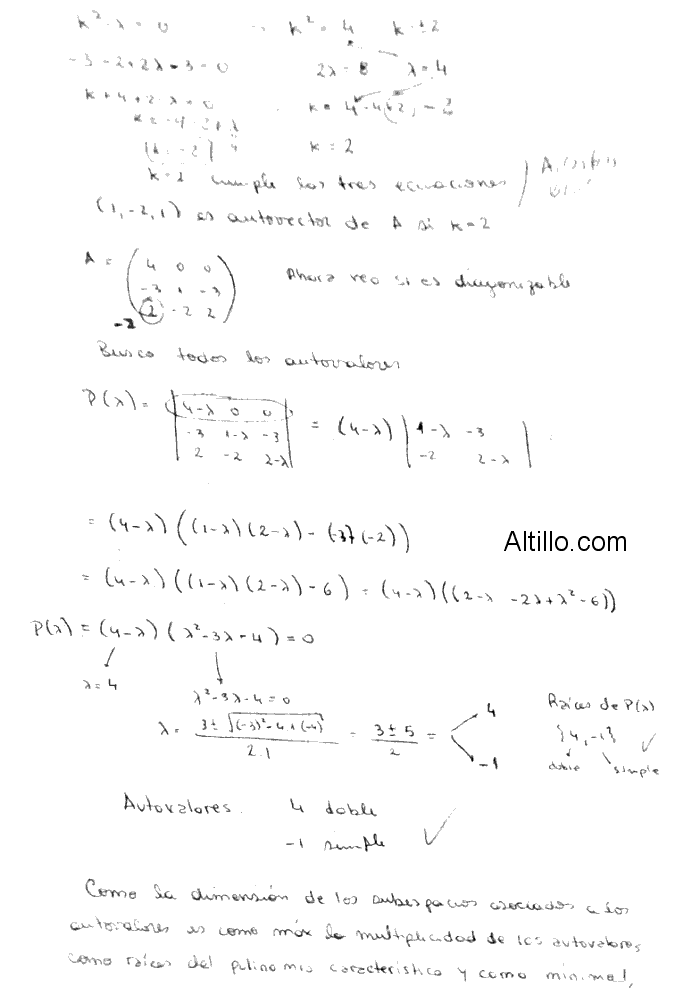 k² - λ = 0 → k² = 4 k ± 2
-3 - 2 + 2λ - 3 = 0 2λ = 8 λ = 4
k + 4 + 2 - λ = 0 k = 4 - 4 + 2, -2
k = -4 - 2 + λ
k = -2 4 k = 2
k = 2 cumple las tres ecuaciones
(1, -2, 1) es autovector de A si k = 2
A = ( 4 0 0 Ahora veo si es diagonizable
-3 1 -3
2 -2 2 )
-2
Busco todos los autovalores
P(λ) = | 4-λ 0 0 | = (4-λ) | 1-λ -3 |
| -3 1-λ -3 | | -2 2-λ |
| 2 -2 2-λ |
= (4-λ) ((1-λ)(2-λ) - (-3)(-2))
Altillo.com
= (4-λ) ((1-λ)(2-λ) - 6) = (4-λ) ((2-λ -2λ+λ² -6))
P(λ) = (4-λ) (λ² - 3λ - 4) = 0
λ = 4 λ² - 3λ - 4 = 0
λ = 3 ± √(-3)² - 4·1·(-4) / 2.1 = 3 ± 5 / 2 = 4
-1
Raíces de P(λ)
{4, -1} ✓
doble simple
Autovalores 4 doble
-1 simple ✓
Como la dimensión de los subespacios asociados a los
autovalores es como máx la multiplicidad de los autovalores
como raíces del polinomio característico y como mínimo 1,